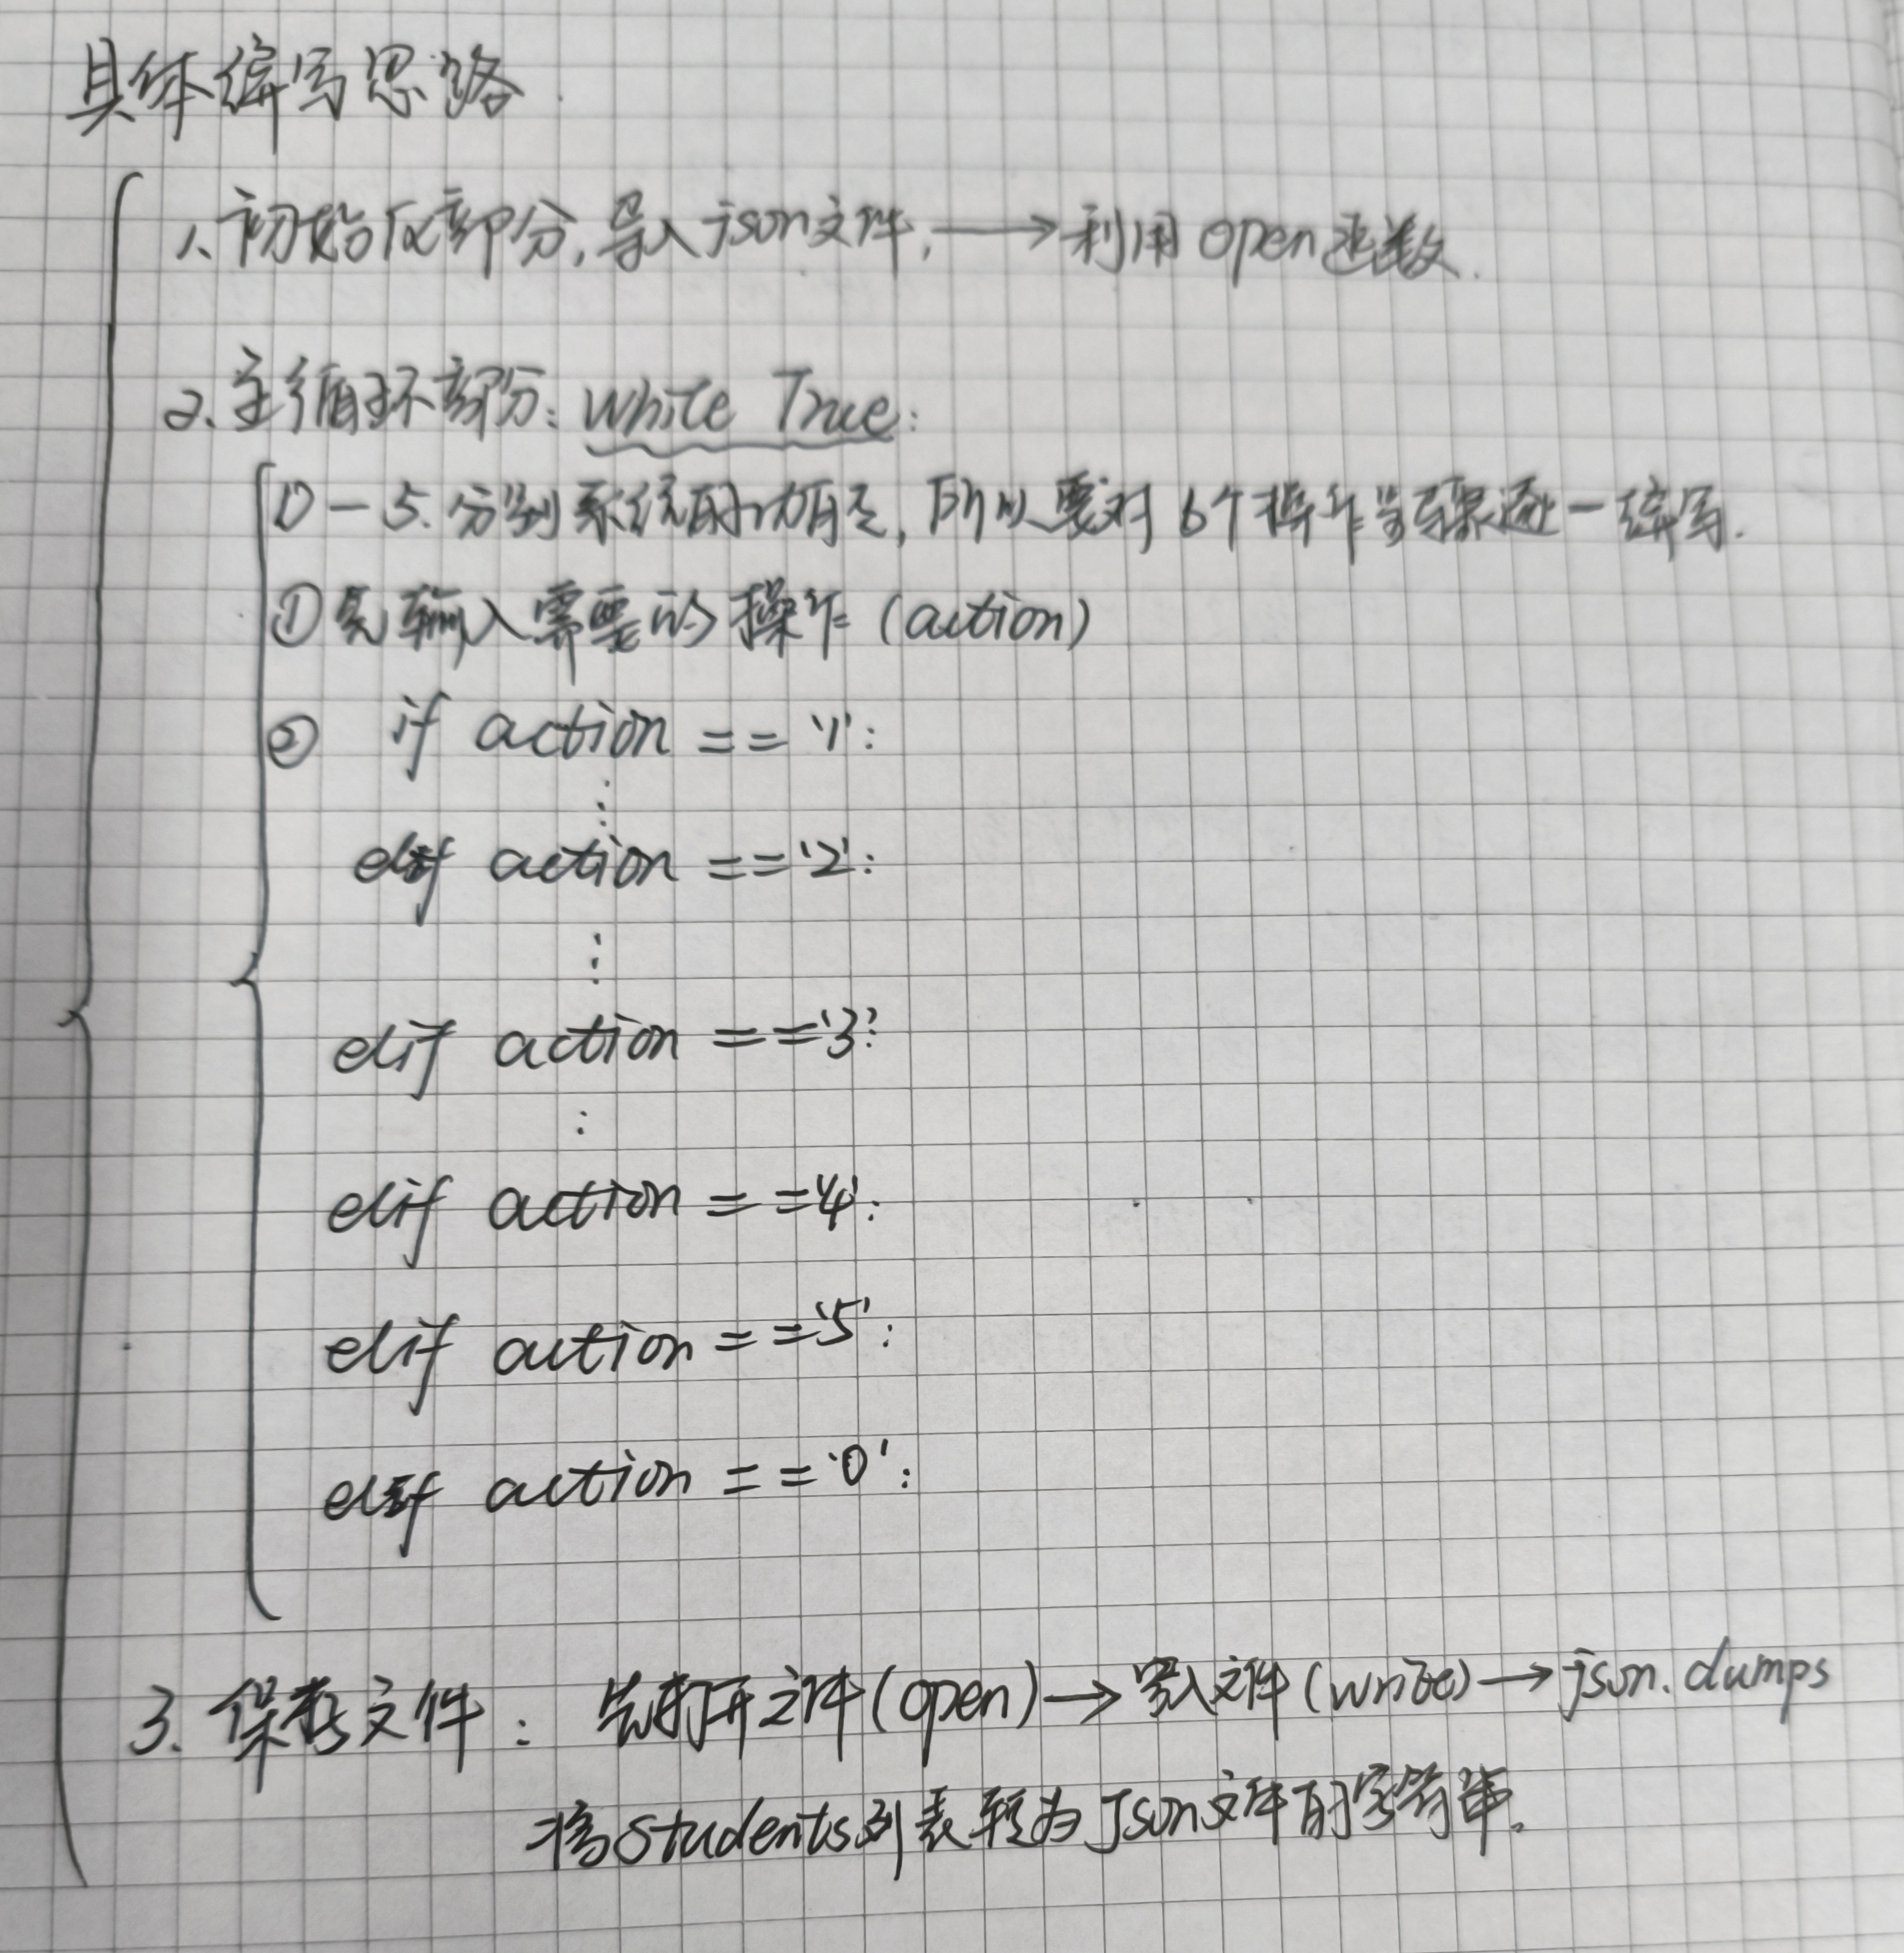 具体编写思路
1. 初始化部分,导入json文件,→利用open函数.
2. 主循环部分: while True:
0-5.分别系统的功能,所以要对6个操作步骤逐一编写.
①先输入需要的操作(action)
② if action == '1':
⋮
elif action == '2':
⋮
elif action == '3':
⋮
elif action == '4':
elif action == '5':
elif action == '0':
3. 保存文件: 先打开文件(open)→写入文件(write)→json.dumps
将students列表转为Json文件的字符串.